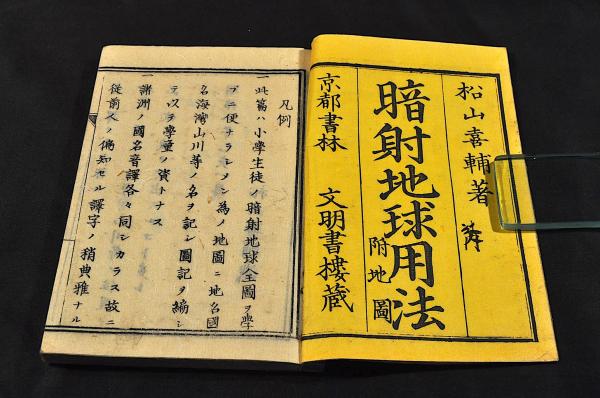 松山喜輔著
暗射地球用法
附地圖
京都書林 文明書樓蔵
凡例
一此篇ハ小學生徒ノ暗射地球全圖ヲ學
ブニ便ナラシメン為ノ地圖ニ地名國
名海灣山川等ノ名ヲ記シ圖記ヲ編シ
テ以テ學童ノ資トナス
一諸洲ノ國名音譯各々同シカラス故ニ
從前人ノ偏知セル譯字ノ稍典雅ナル